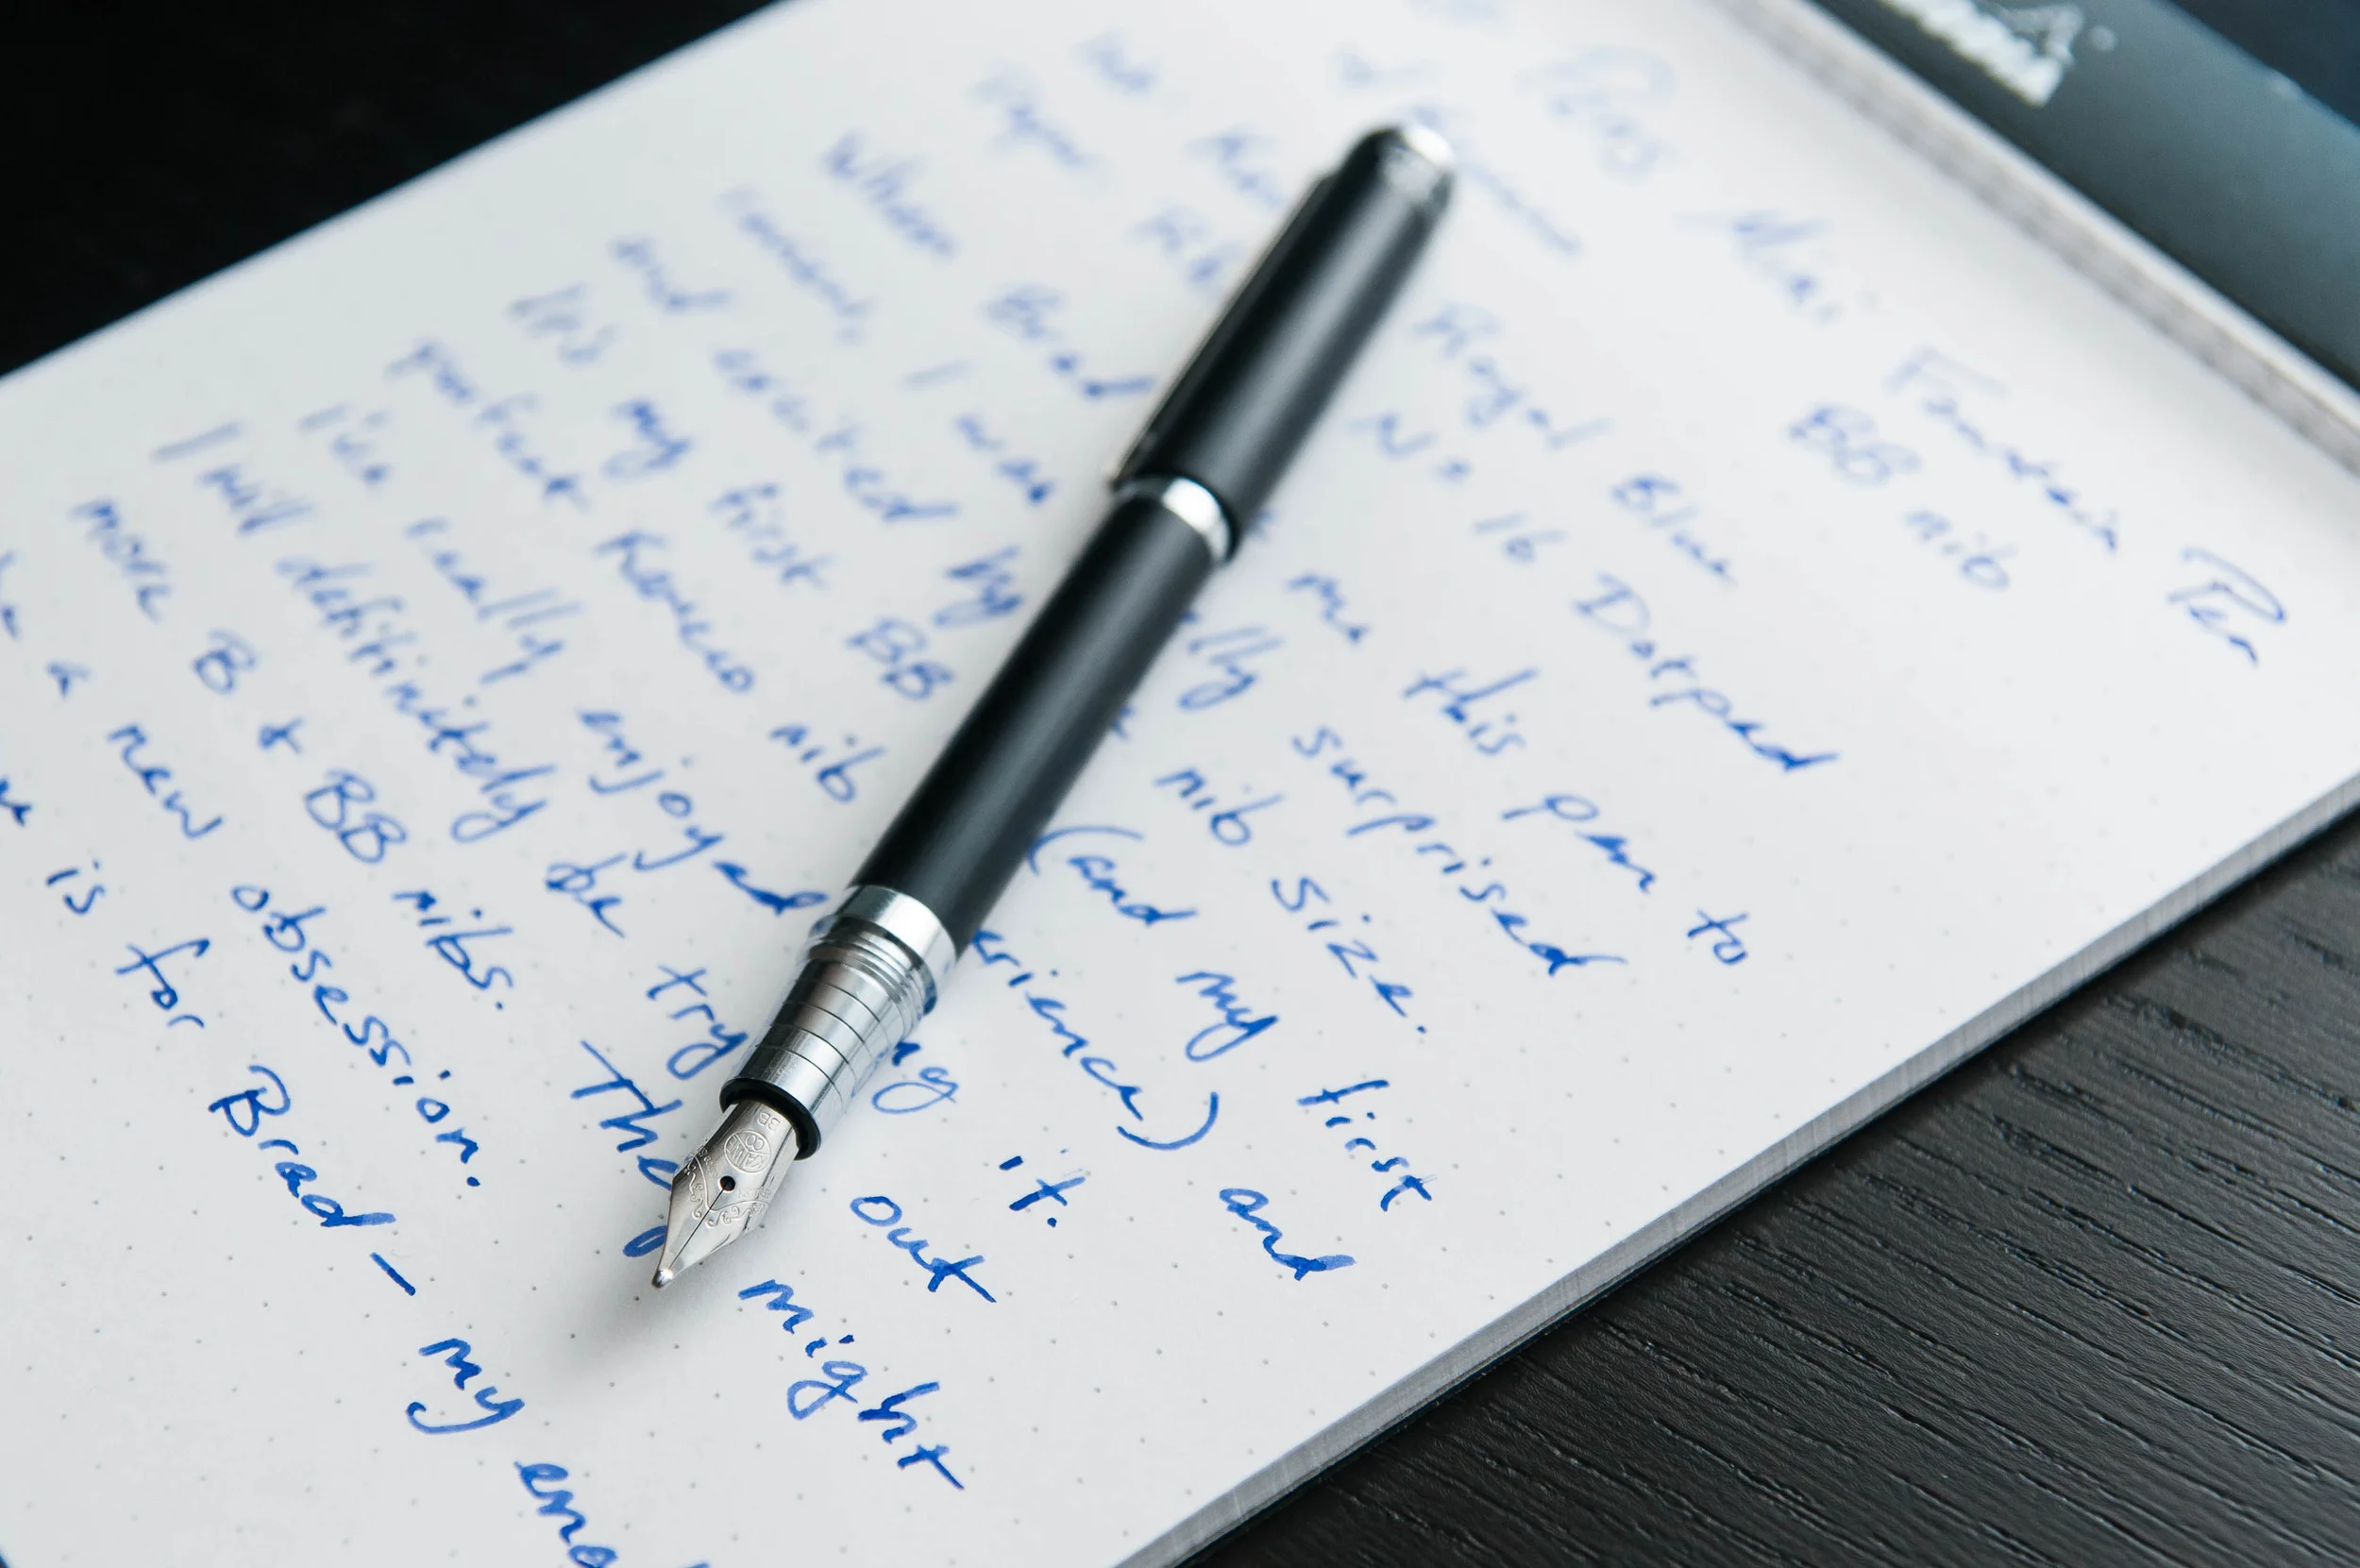 Fountain Pen
BB nib
Ink: Royal Blue
Paper: No 16 Dotpad
When Brad me this pen to
I was surprised
and excited by nib size.
It's my first BB (and my first
perfect Kaweco nib experience) and
I've really enjoyed it.
I will definitely be trying out
more B & BB nibs. They might
be a new obsession.
is for Brad – my
BB